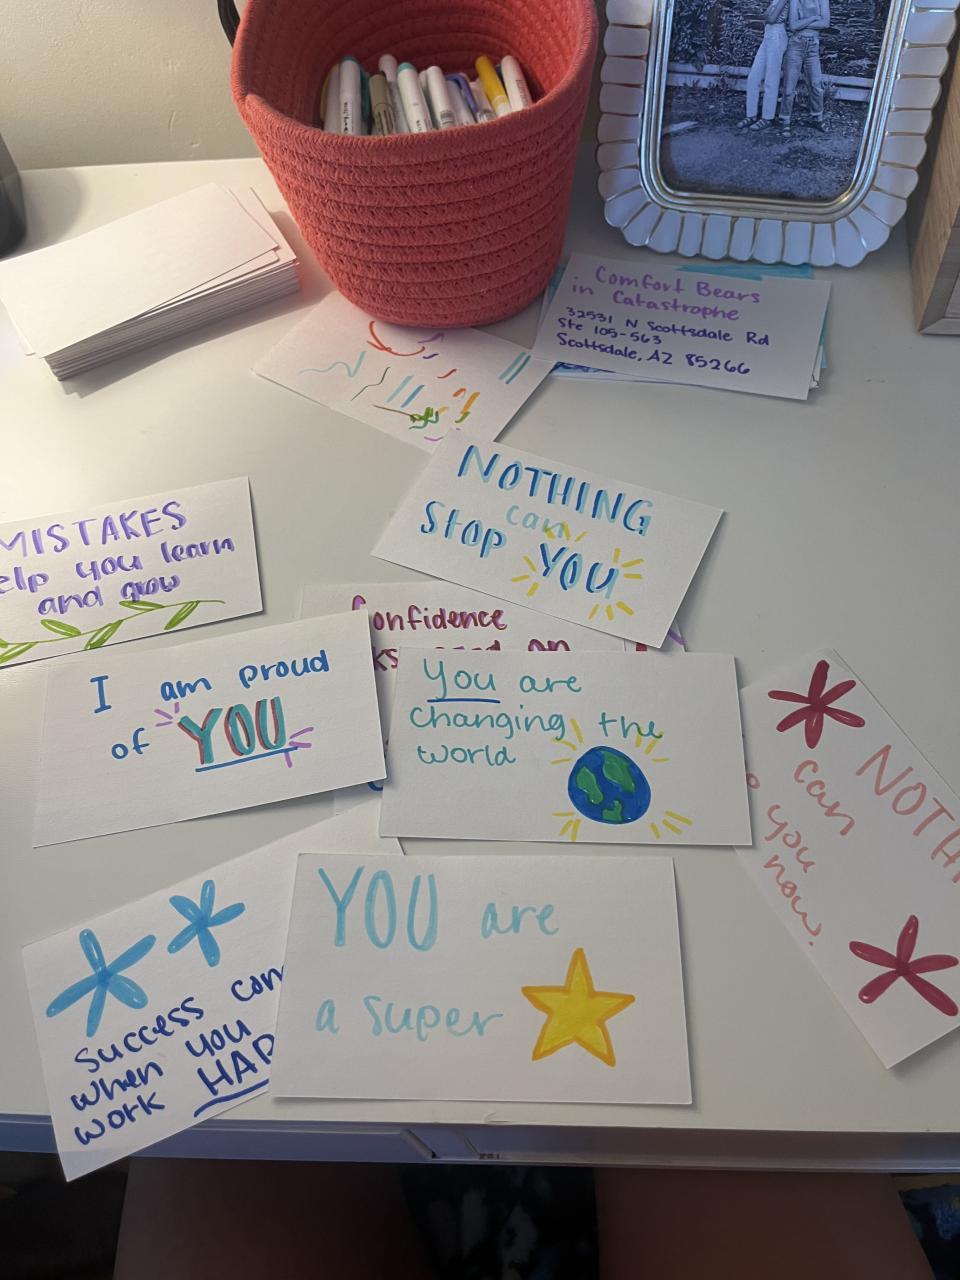 Comfort Bears
in Catastrophe
32531 N Scottsdale Rd
Ste 105-563
Scottsdale, AZ 85266
NOTHING
can
Stop YOU
MISTAKES
elp you learn
and grow
Confidence
on
I am proud
of YOU
You are
changing the
world
NOTH
can
you
now.
YOU are
a super
Success com
when you
work HAR